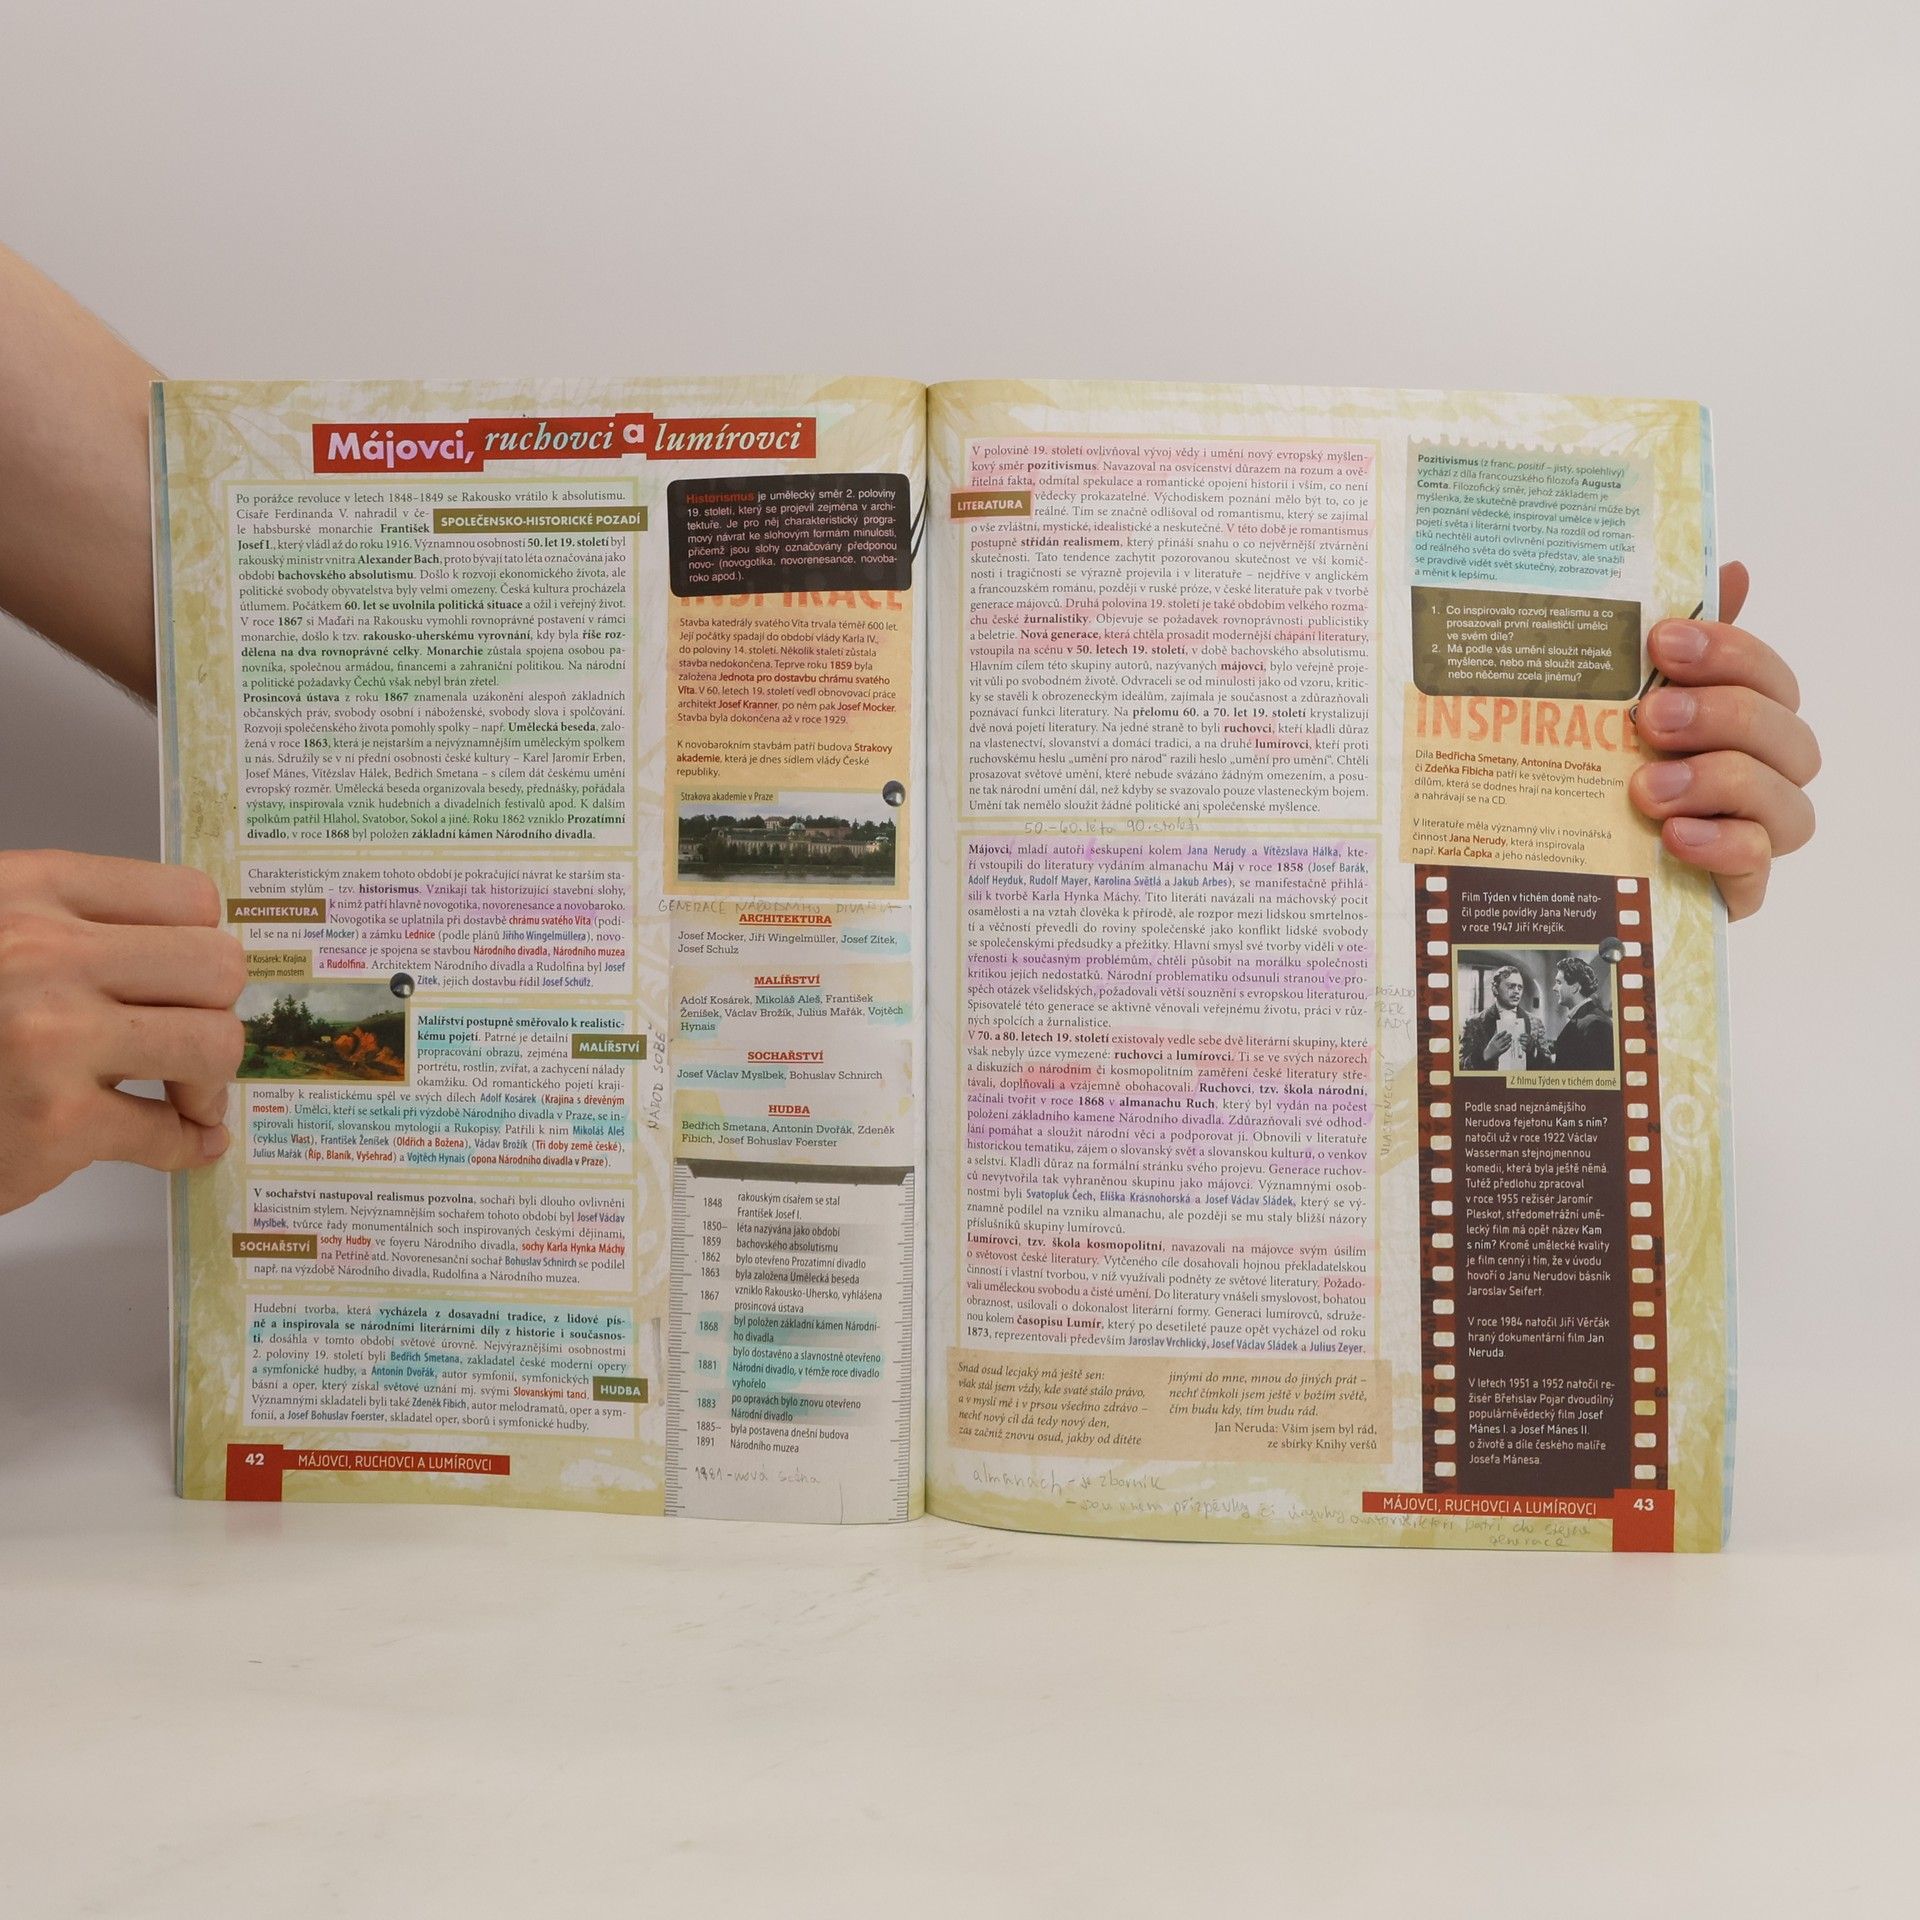 Májovci, ruchovci a lumírovci
Po porážce revoluce v letech 1848–1849 se Rakousko vrátilo k absolutismu.
Císaře Ferdinanda V. nahradil v če-
le habsburské monarchie František
SPOLEČENSKO-HISTORICKÉ POZADÍ
Josef I., který vládl až do roku 1916. Významnou osobností 50. let 19. století byl
rakouský ministr vnitra Alexander Bach, proto bývají tato léta označována jako
období bachovského absolutismu. Došlo k rozvoji ekonomického života, ale
politické svobody obyvatelstva byly velmi omezeny. Česká kultura procházela
útlumem. Počátkem 60. let se uvolnila politická situace a ožil i veřejný život.
V roce 1867 si Maďaři na Rakousku vymohli rovnoprávné postavení v rámci
monarchie, došlo k tzv. rakousko-uherskému vyrovnání, kdy byla říše roz-
dělena na dva rovnoprávné celky. Monarchie zůstala spojena osobou pa-
novníka, společnou armádou, financemi a zahraniční politikou. Na národní
a politické požadavky Čechů však nebyl brán zřetel.
Prosincová ústava z roku 1867 znamenala uzákonění alespoň základních
občanských práv, svobody osobní i náboženské, svobody slova i spolčování.
Rozvoji společenského života pomohly spolky – např. Umělecká beseda, zalo-
žená v roce 1863, která je nejstarším a nejvýznamnějším uměleckým spolkem
u nás. Sdružily se v ní přední osobnosti české kultury – Karel Jaromír Erben,
Josef Mánes, Vítězslav Hálek, Bedřich Smetana – s cílem dát českému umění
evropský rozměr. Umělecká beseda organizovala besedy, přednášky, pořádala
výstavy, inspirovala vznik hudebních a divadelních festivalů apod. K dalším
spolkům patřil Hlahol, Svatobor, Sokol a jiné. Roku 1862 vzniklo Prozatímní
divadlo, v roce 1868 byl položen základní kámen Národního divadla.
Charakteristickým znakem tohoto období je pokračující návrat ke starším sta-
vebním stylům – tzv. historismus. Vznikají tak historizující stavební slohy,
ARCHITEKTURA
k nimž patří hlavně novogotika, novorenesance a novobaroko.
Novogotika se uplatnila při dostavbě chrámu svatého Víta (podí-
lel se na ní Josef Mocker) a zámku Lednice (podle plánů Jiřího Wingelmüllera), novo-
renesance je spojena se stavbou Národního divadla, Národního muzea
a Rudolfina. Architektem Národního divadla a Rudolfina byl Josef
Zítek, jejich dostavbu řídil Josef Schulz.
lf Kosárek: Krajina
řevěným mostem
Malířství postupně směřovalo k realistic-
kému pojetí. Patrné je detailní
MALÍŘSTVÍ
propracování obrazu, zejména
portrétu, rostlin, zvířat, a zachycení nálady
okamžiku. Od romantického pojetí kraji-
nomalby k realistickému spěl ve svých dílech Adolf Kosárek (Krajina s dřevěným
mostem). Umělci, kteří se setkali při výzdobě Národního divadla v Praze, se in-
spirovali historií, slovanskou mytologií a Rukopisy. Patřili k nim Mikoláš Aleš
(cyklus Vlast), František Ženíšek (Oldřich a Božena), Václav Brožík (Tři doby země české),
Julius Mařák (Říp, Blaník, Vyšehrad) a Vojtěch Hynais (opona Národního divadla v Praze).
V sochařství nastupoval realismus pozvolna, sochaři byli dlouho ovlivněni
klasicistním stylem. Nejvýznamnějším sochařem tohoto období byl Josef Václav
Myslbek, tvůrce řady monumentálních soch inspirovaných českými dějinami,
SOCHAŘSTVÍ
sochy Hudby ve foyeru Národního divadla, sochy Karla Hynka Máchy
na Petříně atd. Novorenesanční sochař Bohuslav Schnirch se podílel
např. na výzdobě Národního divadla, Rudolfina a Národního muzea.
Hudební tvorba, která vycházela z dosavadní tradice, z lidové pís-
ně a inspirovala se národními literárními díly z historie i současnos-
ti, dosáhla v tomto období světové úrovně. Nejvýraznějšími osobnostmi
2. poloviny 19. století byli Bedřich Smetana, zakladatel české moderní opery
a symfonické hudby, a Antonín Dvořák, autor symfonií, symfonických
básní a oper, který získal světové uznání mj. svými Slovanskými tanci.
HUDBA
Významnými skladateli byli také Zdeněk Fibich, autor melodramatů, oper a sym-
fonií, a Josef Bohuslav Foerster, skladatel oper, sborů i symfonické hudby.
42
MÁJOVCI, RUCHOVCI A LUMÍROVCI
Historismus je umělecký směr 2. poloviny
19. století, který se projevil zejména v archi-
tektuře. Je pro něj charakteristický progra-
mový návrat ke slohovým formám minulosti,
přičemž jsou slohy označovány předponou
novo- (novogotika, novorenesance, novoba-
roko apod.).
INSPIRACE
Stavba katedrály svatého Víta trvala téměř 600 let.
Její počátky spadají do období vlády Karla IV.,
do poloviny 14. století. Několik staletí zůstala
stavba nedokončena. Teprve roku 1859 byla
založena Jednota pro dostavbu chrámu svatého
Víta. V 60. letech 19. století vedl obnovovací práce
architekt Josef Kranner, po něm pak Josef Mocker.
Stavba byla dokončena až v roce 1929.
K novobarokním stavbám patří budova Strakovy
akademie, která je dnes sídlem vlády České
republiky.
Strakova akademie v Praze
GENERACE NÁRODNÍHO DIVADLA
NÁROD SOBĚ
ARCHITEKTURA
Josef Mocker, Jiří Wingelmüller, Josef Zítek,
Josef Schulz
MALÍŘSTVÍ
Adolf Kosárek, Mikoláš Aleš, František
Ženíšek, Václav Brožík, Julius Mařák, Vojtěch
Hynais
SOCHAŘSTVÍ
Josef Václav Myslbek, Bohuslav Schnirch
HUDBA
Bedřich Smetana, Antonín Dvořák, Zdeněk
Fibich, Josef Bohuslav Foerster
1848 rakouským císařem se stal
František Josef I.
1850– léta nazývána jako období
1859 bachovského absolutismu
1862 bylo otevřeno Prozatímní divadlo
1863 byla založena Umělecká beseda
1867 vzniklo Rakousko-Uhersko, vyhlášena
prosincová ústava
1868 byl položen základní kámen Národní-
ho divadla
bylo dostavěno a slavnostně otevřeno
1881 Národní divadlo, v témže roce divadlo
vyhořelo
1883 po opravách bylo znovu otevřeno
Národní divadlo
1885– byla postavena dnešní budova
1891 Národního muzea
1981 - nová scéna
V polovině 19. století ovlivňoval vývoj vědy i umění nový evropský myšlen-
kový směr pozitivismus. Navazoval na osvícenství důrazem na rozum a ově-
řitelná fakta, odmítal spekulace a romantické opojení historií i vším, co není
LITERATURA
vědecky prokazatelné. Východiskem poznání mělo být to, co je
reálné. Tím se značně odlišoval od romantismu, který se zajímal
o vše zvláštní, mystické, idealistické a neskutečné. V této době je romantismus
postupně střídán realismem, který přináší snahu o co nejvěrnější ztvárnění
skutečnosti. Tato tendence zachytit pozorovanou skutečnost ve vší komič-
nosti i tragičnosti se výrazně projevila i v literatuře – nejdříve v anglickém
a francouzském románu, později v ruské próze, v české literatuře pak v tvorbě
generace májovců. Druhá polovina 19. století je také obdobím velkého rozma-
chu české žurnalistiky. Objevuje se požadavek rovnoprávnosti publicistiky
a beletrie. Nová generace, která chtěla prosadit modernější chápání literatury,
vstoupila na scénu v 50. letech 19. století, v době bachovského absolutismu.
Hlavním cílem této skupiny autorů, nazývaných májovci, bylo veřejně proje-
vit vůli po svobodném životě. Odvraceli se od minulosti jako od vzoru, kritic-
ky se stavěli k obrozeneckým ideálům, zajímala je současnost a zdůrazňovali
poznávací funkci literatury. Na přelomu 60. a 70. let 19. století krystalizují
dvě nová pojetí literatury. Na jedné straně to byli ruchovci, kteří kladli důraz
na vlastenectví, slovanství a domácí tradici, a na druhé lumírovci, kteří proti
ruchovskému heslu „umění pro národ" razili heslo „umění pro umění". Chtěli
prosazovat světové umění, které nebude svázáno žádným omezením, a posu-
ne tak národní umění dál, než kdyby se svazovalo pouze vlasteneckým bojem.
Umění tak nemělo sloužit žádné politické ani společenské myšlence.
50.-60. léta 90. století
Májovci, mladí autoři seskupení kolem Jana Nerudy a Vítězslava Hálka, kte-
ří vstoupili do literatury vydáním almanachu Máj v roce 1858 (Josef Barák,
Adolf Heyduk, Rudolf Mayer, Karolina Světlá a Jakub Arbes), se manifestačně přihlá-
sili k tvorbě Karla Hynka Máchy. Tito literáti navázali na máchovský pocit
osamělosti a na vztah člověka k přírodě, ale rozpor mezi lidskou smrtelnos-
tí a věčností převedli do roviny společenské jako konflikt lidské svobody
se společenskými předsudky a přežitky. Hlavní smysl své tvorby viděli v ote-
vřenosti k současným problémům, chtěli působit na morálku společnosti
kritikou jejích nedostatků. Národní problematiku odsunuli stranou ve pro-
spěch otázek všelidských, požadovali větší souznění s evropskou literaturou.
Spisovatelé této generace se aktivně věnovali veřejnému životu, práci v růz-
ných spolcích a žurnalistice.
V 70. a 80. letech 19. století existovaly vedle sebe dvě literární skupiny, které
však nebyly úzce vymezené: ruchovci a lumírovci. Ti se ve svých názorech
a diskuzích o národním či kosmopolitním zaměření české literatury stře-
távali, doplňovali a vzájemně obohacovali. Ruchovci, tzv. škola národní,
začínali tvořit v roce 1868 v almanachu Ruch, který byl vydán na počest
položení základního kamene Národního divadla. Zdůrazňovali své odhod-
lání pomáhat a sloužit národní věci a podporovat ji. Obnovili v literatuře
historickou tematiku, zájem o slovanský svět a slovanskou kulturu, o venkov
a selství. Kladli důraz na formální stránku svého projevu. Generace ruchov-
ců nevytvořila tak vyhraněnou skupinu jako májovci. Významnými osob-
nostmi byli Svatopluk Čech, Eliška Krásnohorská a Josef Václav Sládek, který se vý-
znamně podílel na vzniku almanachu, ale později se mu staly bližší názory
příslušníků skupiny lumírovců.
Lumírovci, tzv. škola kosmopolitní, navazovali na májovce svým úsilím
o světovost české literatury. Vytčeného cíle dosahovali hojnou překladatelskou
činností i vlastní tvorbou, v níž využívali podněty ze světové literatury. Požado-
vali uměleckou svobodu a čisté umění. Do literatury vnášeli smyslovost, bohatou
obraznost, usilovali o dokonalost literární formy. Generaci lumírovců, sdruže-
nou kolem časopisu Lumír, který po desetileté pauze opět vycházel od roku
1873, reprezentovali především Jaroslav Vrchlický, Josef Václav Sládek a Julius Zeyer.
VLASTENECTVÍ
Snad osud lecjaký má ještě sen:
však stál jsem vždy, kde svaté stálo právo,
a v mysli mé i v prsou všechno zdrávo –
nechť nový cíl dá tedy nový den,
zas začniž znovu osud, jakby od dítěte
jinými do mne, mnou do jiných prát –
nechť čímkoli jsem ještě v božím světě,
čím budu kdy, tím budu rád.
Jan Neruda: Vším jsem byl rád,
ze sbírky Knihy veršů
almanach - je zborník
MÁJOVCI, RUCHOVCI A LUMÍROVCI
43
Pozitivismus (z franc. positif – jistý, spolehlivý)
vychází z díla francouzského filozofa Augusta
Comta. Filozofický směr, jehož základem je
myšlenka, že skutečně pravdivé poznání může být
jen poznání vědecké, inspiroval umělce v jejich
pojetí světa i literární tvorby. Na rozdíl od roman-
tiků nechtěli autoři ovlivnění pozitivismem utíkat
od reálného světa do světa představ, ale snažili
se pravdivě vidět svět skutečný, zobrazovat jej
a měnit k lepšímu.
1. Co inspirovalo rozvoj realismu a co
prosazovali první realističtí umělci
ve svém díle?
2. Má podle vás umění sloužit nějaké
myšlence, nebo má sloužit zábavě,
nebo něčemu zcela jinému?
INSPIRACE
Díla Bedřicha Smetany, Antonína Dvořáka
či Zdeňka Fibicha patří ke světovým hudebním
dílům, která se dodnes hrají na koncertech
a nahrávají se na CD.
V literatuře měla významný vliv i novinářská
činnost Jana Nerudy, která inspirovala
např. Karla Čapka a jeho následovníky.
Film Týden v tichém domě nato-
čil podle povídky Jana Nerudy
v roce 1947 Jiří Krejčík.
Z filmu Týden v tichém domě
Podle snad nejznámějšího
Nerudova fejetonu Kam s ním?
natočil už v roce 1922 Václav
Wasserman stejnojmennou
komedii, která byla ještě němá.
Tutéž předlohu zpracoval
v roce 1955 režisér Jaromír
Pleskot, středometrážní umě-
lecký film má opět název Kam
s ním? Kromě umělecké kvality
je film cenný i tím, že v úvodu
hovoří o Janu Nerudovi básník
Jaroslav Seifert.
V roce 1984 natočil Jiří Věrčák
hraný dokumentární film Jan
Neruda.
V letech 1951 a 1952 natočil re-
žisér Břetislav Pojar dvoudílný
populárněvědecký film Josef
Mánes I. a Josef Mánes II.
o životě a díle českého malíře
Josefa Mánesa.